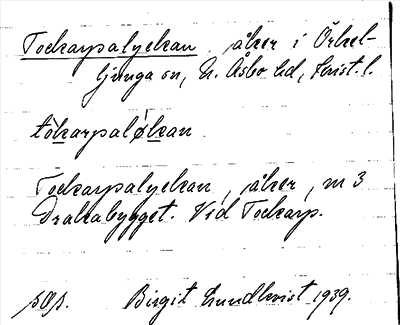 Tockarpalyckan, åker i Örkel-
ljunga sn, N. Åsbo hd, Krist. l.
tòkarpaløkan
Tockarpalyckan, åker, m 3
Drakabygget. Vid Tockarp.
Birgit Lundkvist 1939.